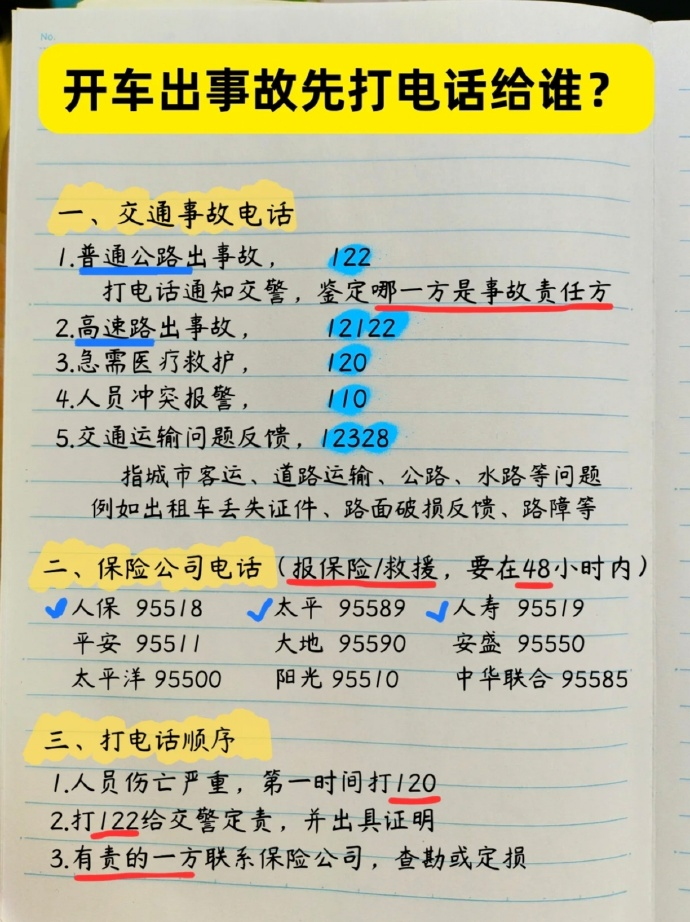 No.
开车出事故先打电话给谁？
一、交通事故电话
1.普通公路出事故， 122
打电话通知交警，鉴定哪一方是事故责任方
2.高速路出事故， 12122
3.急需医疗救护， 120
4.人员冲突报警， 110
5.交通运输问题反馈，12328
指城市客运、道路运输、公路、水路等问题
例如出租车丢失证件、路面破损反馈、路障等
二、保险公司电话（报保险/救援，要在48小时内）
人保 95518 太平 95589 人寿 95519
平安 95511 大地 95590 安盛 95550
太平洋 95500 阳光 95510 中华联合 95585
三、打电话顺序
1.人员伤亡严重，第一时间打120
2.打122给交警定责，并出具证明
3.有责的一方联系保险公司，查勘或定损